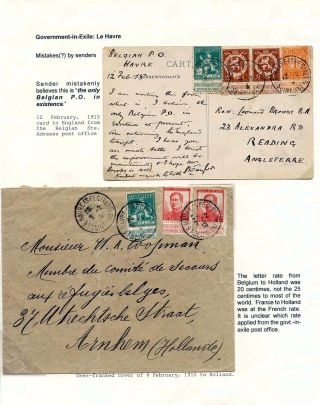 Government-in-Exile: Le Havre
Mistakes(?) by senders
Sender mistakenly
believes this is "the only
Belgian P.O. in
existence."
12 February, 1915
card to England from
the Belgian Ste.
Adresse post office
BELGIAN P.O.
HAVRE
12 Feb. 15
CARTE
CORRESPONDANCE
I am writing this from
what is, I believe, the
only Belgian P.O. in
existence at present.
Am returning to
England tonight.
I hope
Rev. Leonard Brooks B.A
23 Alexandra Rd
READING
ANGLETERRE
Monsieur W. A. Coopman,
Membre du Comité de Secours
aux réfugiés belges,
37, Utrechtsche Straat,
Arnhem (Hollande)
The letter rate from
Belgium to Holland was
20 centimes, not the 25
centimes to most of the
world. France to Holland
was at the French rate.
It is unclear which rate
applied from the govt.-in-
exile post office.
Over-franked cover of 9 February, 1915 to Holland